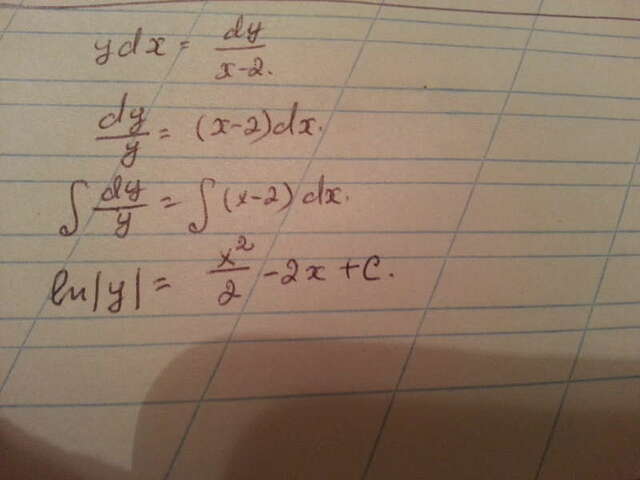 ydx = dy/x-2.
dy/y = (x-2)dx.
∫ dy/y = ∫ (x-2) dx.
ln|y| = x²/2 - 2x + C.